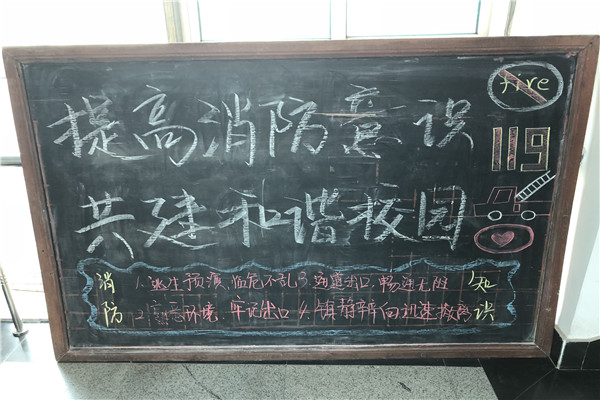 提高消防意识
fire
119
共建和谐校园
消防
1.逃生预演,临危不乱 3.通道出口,畅通无阻
2.熟悉环境,牢记出口 4.镇静辨向,迅速撤离
知识